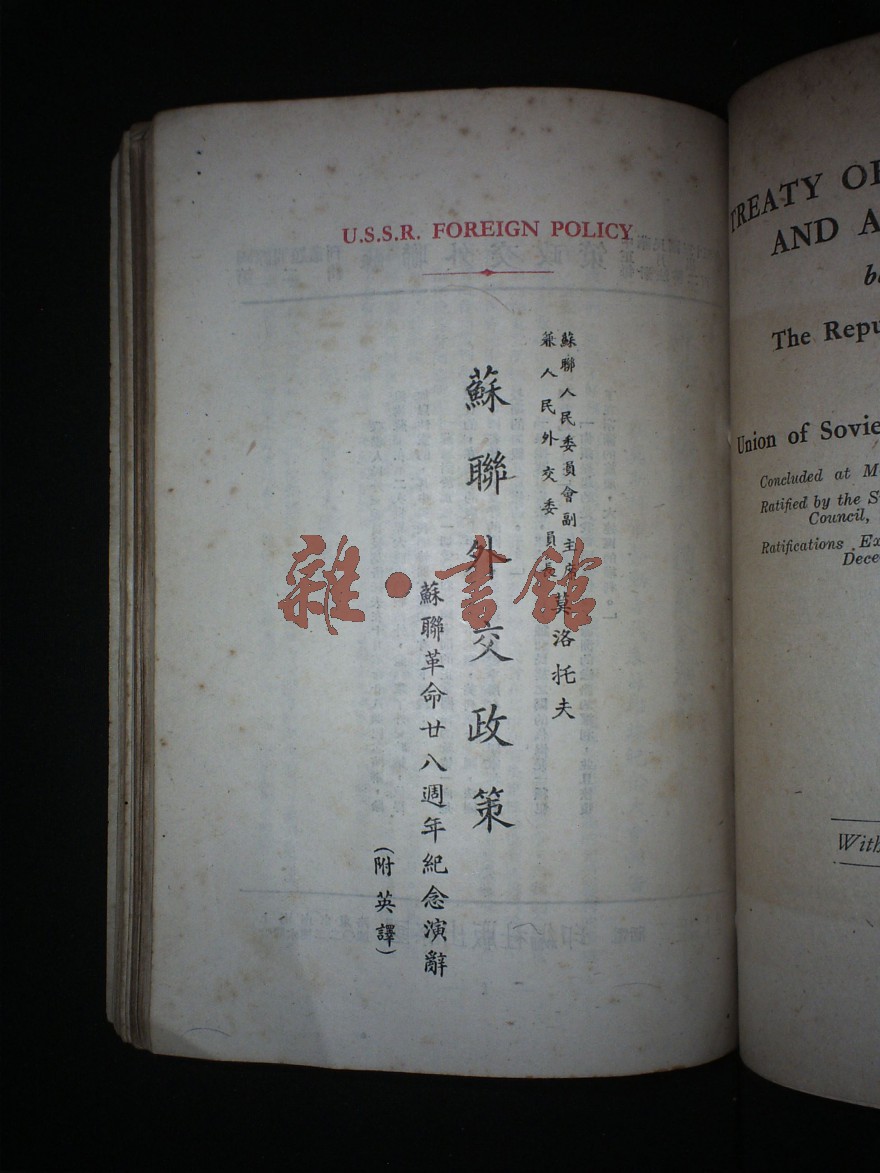 U.S.S.R. FOREIGN POLICY
蘇聯人民委員會副主席
兼人民外交委員長
莫洛托夫
蘇聯外交政策
蘇聯革命廿八週年紀念演辭
(附英譯)
雜·書館
TREATY OF
AND A
be
The Repu
Union of Sovie
Concluded at M
Ratified by the S
Council,
Ratifications Ex
Dece
With